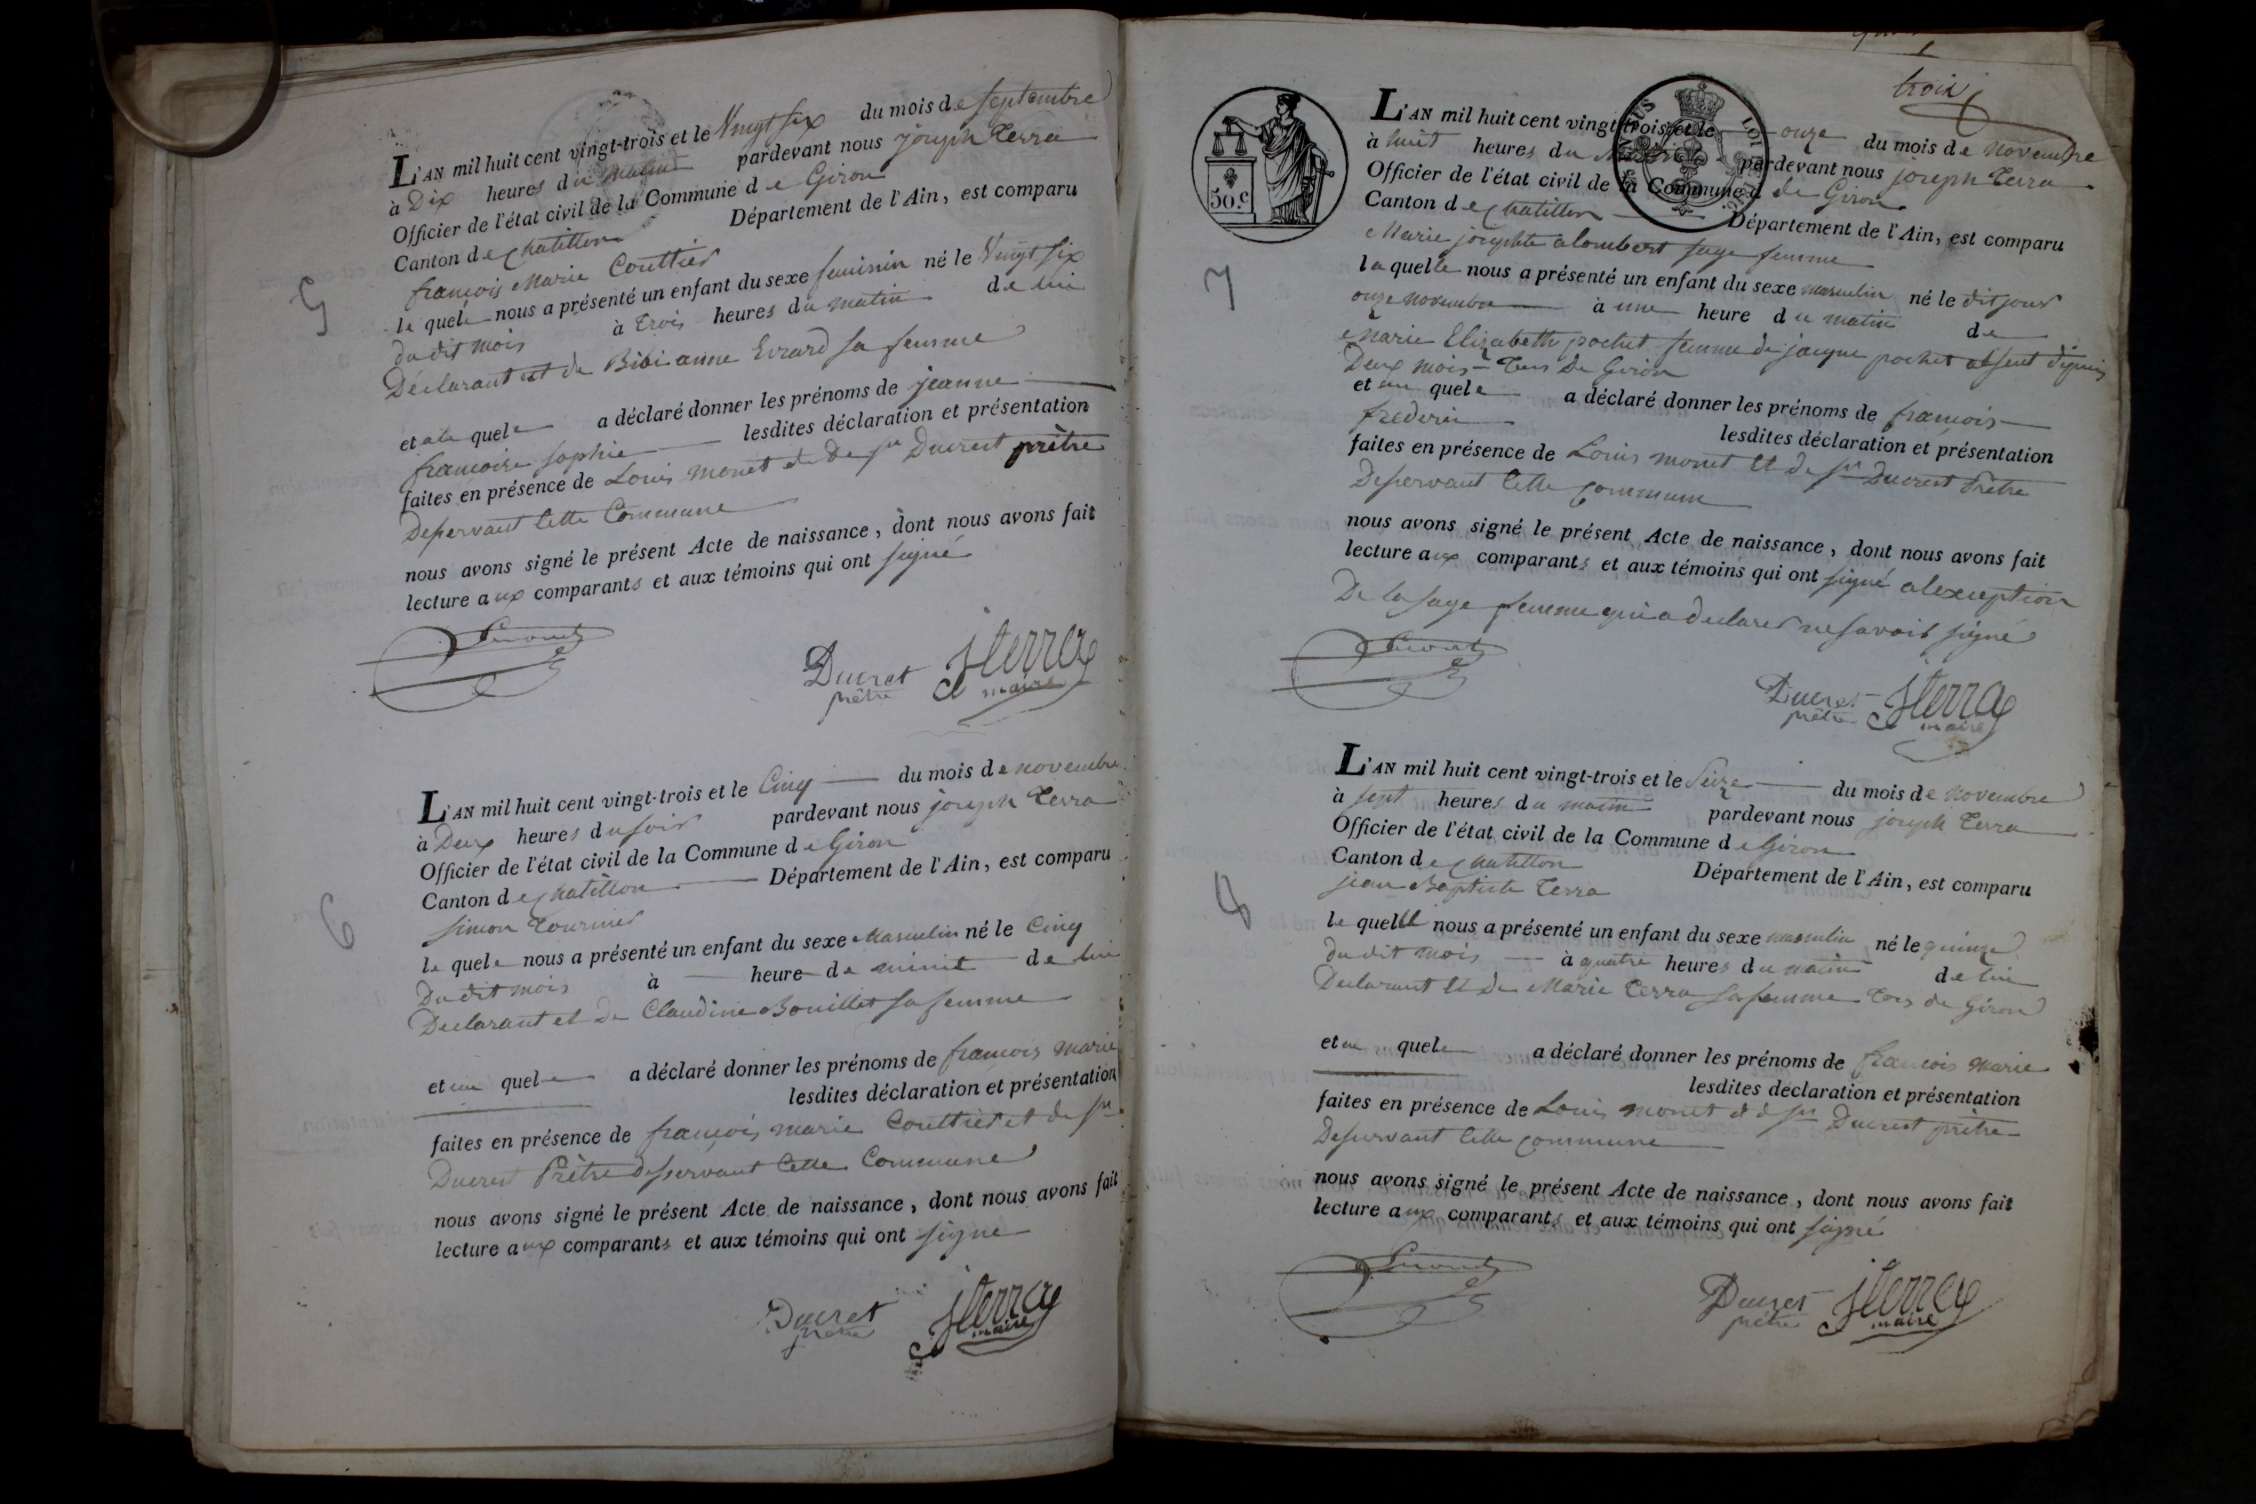 5
L'AN mil huit cent vingt-trois et le Vingt six du mois de septembre
à Dix heures du matin pardevant nous joseph Terra
Officier de l'état civil de la Commune de Giron
Canton de chatillon Département de l'Ain, est comparu
françois Marie Couttier
le quele nous a présenté un enfant du sexe feminin né le Vingt six
du dit mois à Trois heures du matin de lui
Déclarant et de Bibianne Evrard sa femme
et a la quele a déclaré donner les prénoms de jeanne
francoise sophie lesdites déclaration et présentation
faites en présence de Louis monet et de sr Ducrest prêtre
Deservant Cette Commune
nous avons signé le présent Acte de naissance, dont nous avons fait
lecture aux comparants et aux témoins qui ont signé
Lmonet
Ducret
prêtre
jterra
maire
6
L'AN mil huit cent vingt-trois et le Cinq du mois de novembre
à Deux heures du soir pardevant nous joseph Terra
Officier de l'état civil de la Commune de Giron
Canton de chatillon Département de l'Ain, est comparu
simon Tournier
le quele nous a présenté un enfant du sexe Masculin né le Cinq
Du dit mois à heure de minuit de lui
Declarant et de Claudine Bouillet sa femme
et au quele a déclaré donner les prénoms de françois marie
lesdites déclaration et présentation
faites en présence de françois marie Couttier et de sr
Ducrest Prêtre desservant Cette Commune
nous avons signé le présent Acte de naissance, dont nous avons fait
lecture aux comparants et aux témoins qui ont signé
Ducret
prêtre
jterra
maire
trois
50 c
LOI
7
L'AN mil huit cent vingt-trois et le onze du mois de novembre
à huit heures du matin pardevant nous joseph Terra
Officier de l'état civil de la Commune de Giron
Canton de chatillon Département de l'Ain, est comparu
Marie josephte alombert sage femme
la quelle nous a présenté un enfant du sexe masculin né le dit jour
onze novembre à une heure du matin de
Marie Elizabeth pochet femme de jacque pochet absent depuis
Deux mois Tous De Giron
et au quele a déclaré donner les prénoms de françois
frederic lesdites déclaration et présentation
faites en présence de Louis monet et de sr Ducrest Prêtre
Deservant Cette Commune
nous avons signé le présent Acte de naissance, dont nous avons fait
lecture aux comparants et aux témoins qui ont signé alexception
De la sage femme qui a declarer ne savoir signé
Lmonet
Ducret
prêtre
jterra
maire
8
L'AN mil huit cent vingt-trois et le Seize du mois de novembre
à sept heures du matin pardevant nous joseph Terra
Officier de l'état civil de la Commune de Giron
Canton de chatillon Département de l'Ain, est comparu
jean Baptiste Terra
le quel nous a présenté un enfant du sexe masculin né le quinze
du dit mois à quatre heures du matin de lui
Declarant et de Marie Terra sa femme Tous de Giron
et au quele a déclaré donner les prénoms de francois marie
lesdites déclaration et présentation
faites en présence de Louis monet et d sr Ducrest prêtre
Deservant Cette commune
nous avons signé le présent Acte de naissance, dont nous avons fait
lecture aux comparants et aux témoins qui ont signé
Lmonet
Ducret
prêtre
jterra
maire